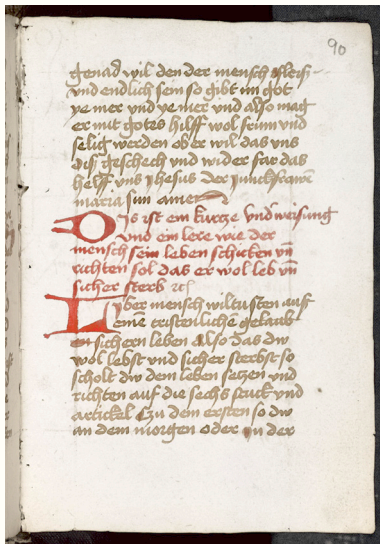 90
genad wil den der mensch fleis
und endlich sein so gibt im got
ye mer und ye mer und also mag
er mit gotes hilff wol frum und
selig werden ob er wil das uns
dis geschech und wider far das
helff uns yhesus der junckfrawē
maria sun amen
Dis ist ein kurtze underweisung
und ein lere wie der
mensch sein leben schicken vn̄
richten sol das er wol leb vn̄
sicher sterb ꝛcͣ
Lyber mensch wiltu sten auf
einē cristenlichē gelaub
en sichern leben also das dw
wol lebst und sicher sterbst so
scholt dw dein leben setzen und
richten auf die sechs stuck und
artickel Czu dem ersten so dw
an dem morgen oder an der